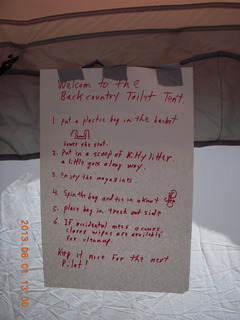 Welcome to the
Backcountry Toilet Tent.
1. Put a plastic bag in the bucket
lower the seat.
2. Put in a scoop of Kitty litter.
a little goes along way.
3. enjoy the magazines.
4. Spin the bag and tie in a knot
5. place bag in trash out side
6. If accidental mess occures,
clorox wipes are available
for cleanup.
Keep it nice for the next
Pilot!
2013 06 01 12:00